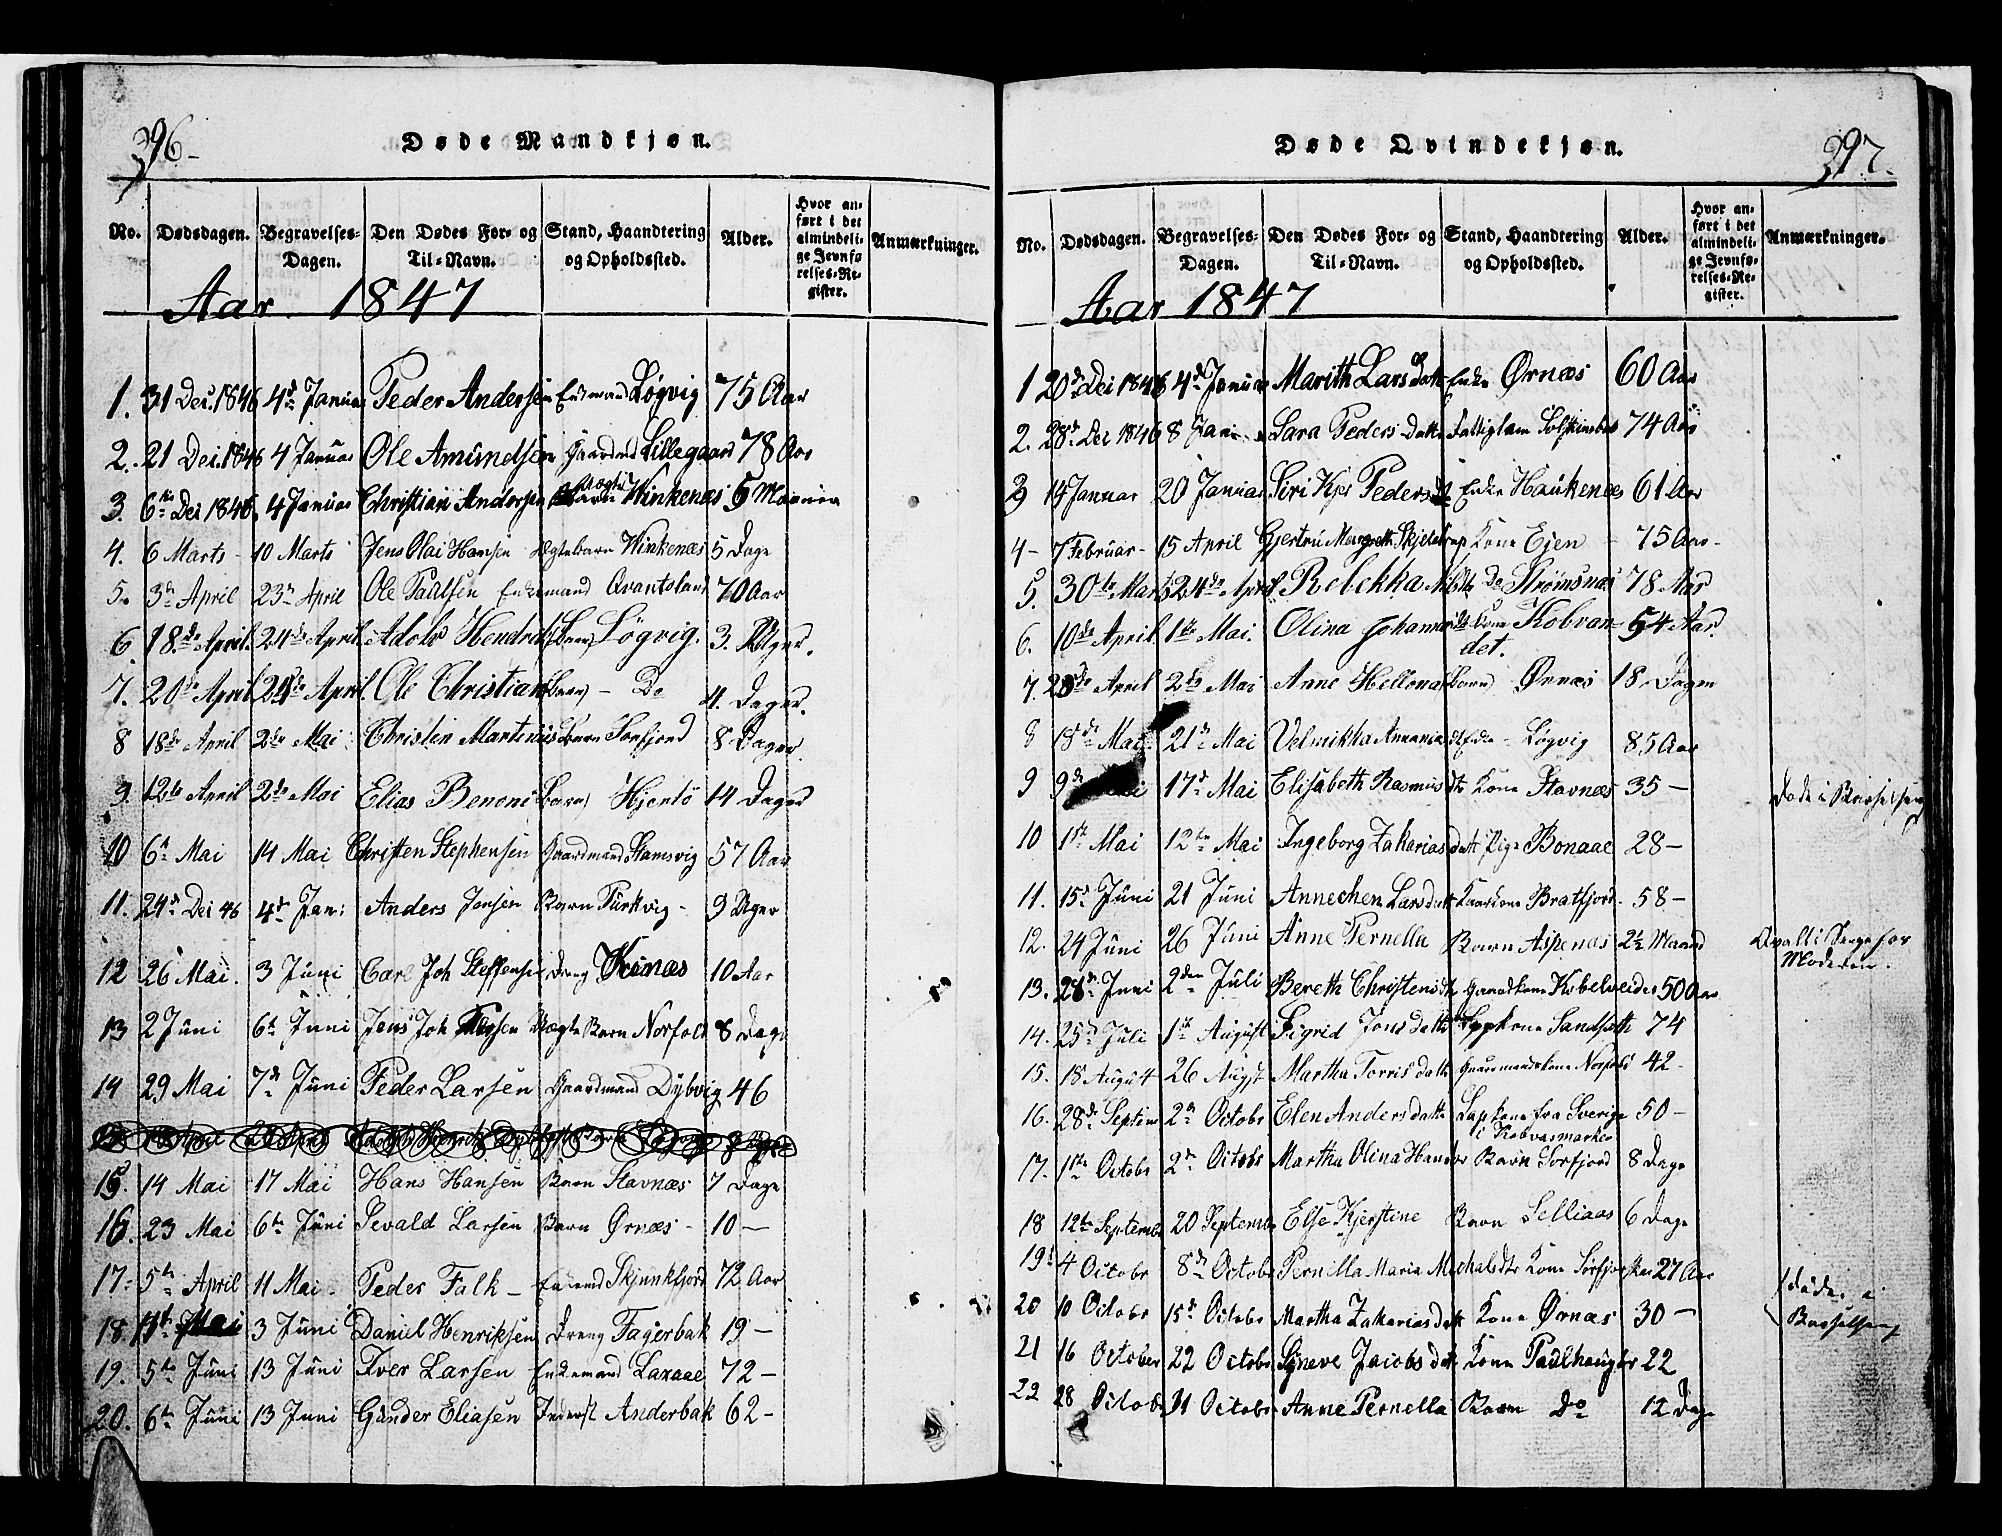 396
Døde Mandkjøn.
No. Dødsdagen. Begravelses-Dagen. Den Dødes For- og Til-Navn. Stand, Haandtering og Opholdssted. Alder. Hvor anført i det almindelige Jevnførelses-Register. Anmærkninger.
Aar 1847
1. 31 Dec. 1846 4d Januar Peder Andersen Enkemand Løgvig 75 Aar
2. 21 Dei. 1846 4 Januar Ole Amundsen Gaardmd Lillegaard 78 Aar
3. 6te Dei 1846 4 Januar Christian Andersen Ægte Barn Winkenæs 5 Maaneder
4. 6 Marts - 10 Marts Jens Olai Hansen Ægtebarn Winkenæs 5 Dage
5. 3de April 23de April Ole Paulsen Enkemand Qvantoland 70 Aar
6. 18de April. 24de April Adolv Hendrik (Barn) Løgvig. 3. Uger.
7. 20de April 24de April. Ole Christian (Barn) - Do 4. Dager.
8 18de April 2de Mai Christen Martinius Barn Sørfjord 8 Dager
9. 12te April 2de Mai Elias Benoni (Barn) Hjertø 14 Dager
10 6te Mai 14 Mai Christen Stephensen Gaardmand Stamsvig 57 Aar
11. 24de Dei 46 4d Jan: Anders Jensen Barn Purkvig - 9 Uger
12 26 Mai. 3 Juni Carl Joh Steffensen Dreng 10 Aar
13 2 Juni 6te Juni Jens Joh Ægte Barn Norfold 8 Dage
14 29 Mai 7de Juni Peder Larsen Gaardmand Dybvig 46
15 14 Mai 17 Mai Hans Hansen Barn Stavnæs 7 Dage
16. 23 Mai 6te Juni Sevald Larsen Barn Ørnæs - 10 -
17. 5te April 11 Mai - Peder Falk - Enkemd Skjunkfjord 72 Aar
18. 11te Mai 3 Juni Daniel Henriksen Dreng Fagerbak 19 -
19. 5te Juni 13 Juni Iver Larsen Enkemand Laxaae 72 -
20. 6te Juni 13 Juni Gunder Eliasen Inderst Anderbak 62 -
297.
Døde Qvindekjøn.
No. Dødsdagen. Begravelses-Dagen. Den Dødes For- og Til-Navn. Stand, Haandtering og Opholdssted. Alder. Hvor anført i det almindelige Jevnførelses-Register. Anmærkninger.
Aar 1847
1 20de Dei 1846 4d Januar Marith Larsdatt Enke Ørnæs 60 Aar
2. 28de Dei 1846 8 Jan Lara Peders Datt Fattiglem 74 Aar
3 14 Januar 20 Januar Siri Kjer Pedersdt Enke Haukenæs 61 Aar
4 - 7 Februar - 15 April Gjertru Margreth Skjelstrup Kone Ejen - 75 Aar -
5. 30te Marts 24de April Rebekka Do Strømsnæs 78 Aar
6. 10de April. 1te Mai. Olina Johannesdt Kone Kobvandet. 54 Aar.
7. 28de April 2de Mai Anne Hellena (Barn) Ørnæs 18 Dager
8 18de Mai 21de Mai Velmikka Annaniasdt Enke - Løgvig 85 Aar
9 9de Mai 17de Mai Elisabeth Rasmusdtr Kone Stavnæs 35 - Døde i Barselseng
10 1ste Mai 12te Mai Ingeborg Zakariasdatt Pige Bonaae 28 -
11. 15d Juni 21 Juni Annechen Larsdatt Gaardkone Bratfjord. 58 -
12. 24 Juni 26 Juni Anne Pernella Barn Aspenæs 2½ Maaned Qvalt i Senge for Moderen.
13. 28de Juni 2den Juli Bereth Christensdtr Gaardkone Kobelveider 50 Aar
14. 25de Juli 1ste August Sigrid Jonsdatt 74
15. 18 August 26 Augst Martha Torrisdatt Gaardmandskone Norfold 42 -
16. 28de Septem 2den Octobr Elen Andersdatt Lapkone fra Sverige i Kobvasmarken 50 -
17. 1ste Octobr 2den Octobr Martha Olina Hansdtr Barn Sørfjord 8 Dage
18 12te Septembr 20 Septembr Else Kjerstine Barn Selliaas 6 Dage
19 4 Octobr 8de Octobr Pernilla Maria Michalsdtr Kone Sørfjorden 27 Aar
20 10 Octobr 15de Octobr Martha Zakariasdatt Kone Ørnæs 30 - Døde i Barselseng
21 16 October 22 Octobr Synneve Jacobsdatt Kone Paalhaugen 22
22 28 Octobr 31 Octobr Anne Pernella Barn Do 12 Dage